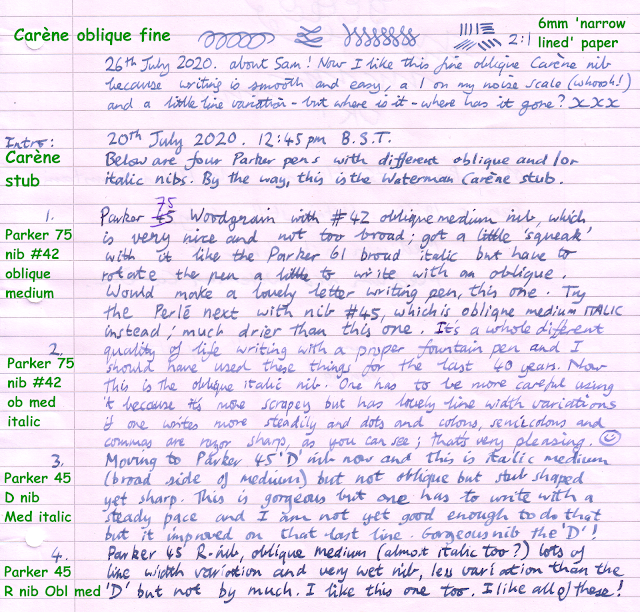 Carène oblique fine
2:1
6mm 'narrow
lined' paper
26th July 2020. about 5am! Now I like this fine oblique Carène nib
because writing is smooth and easy, a 1 on my noise scale (whoosh!)
and a little line variation - but where is it - where has it gone? x x x
Intro:
20th July 2020. 12:45pm B.S.T.
Carène
stub
Below are four Parker pens with different oblique and/or
italic nibs. By the way, this is the Waterman Carène stub.
1.
75
Parker 45 Woodgrain with #42 oblique medium nib, which
Parker 75
nib #42
oblique
medium
is very nice and not too broad; got a little 'squeak'
with it like the Parker 61 broad italic but have to
rotate the pen a little to write with an oblique.
Would make a lovely letter writing pen, this one. Try
the Perlé next with nib #45, which is oblique medium ITALIC
instead; much drier than this one. It's a whole different
2.
Parker 75
nib #42
ob med
italic
quality of life writing with a proper fountain pen and I
should have used these things for the last 40 years. Now
this is the oblique italic nib. One has to be more careful using
it because it's more scrapey but has lovely line width variations
if one writes more steadily and dots and colons, semicolons and
commas are razor sharp, as you can see; that's very pleasing. ☺
3.
Parker 45
D nib
Med italic
Moving to Parker 45 'D' nib now and this is italic medium
(broad side of medium) but not oblique but stub shaped
yet sharp. This is gorgeous but one has to write with a
steady pace and I am not yet good enough to do that
but it improved on that last line. Gorgeous nib the 'D'!
4.
Parker 45
R nib Obl med
Parker 45 R-nib, oblique medium (almost italic too?) lots of
line width variation and very wet nib, less variation than the
'D' but not by much. I like this one too. I like all of these!